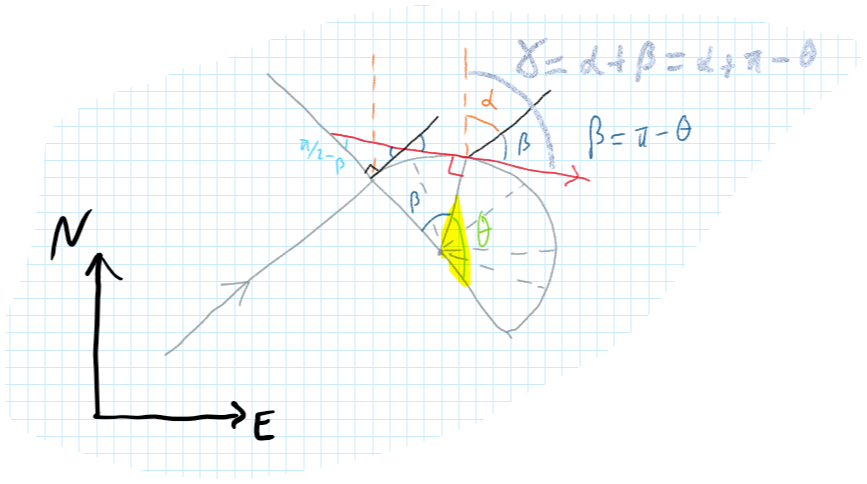 γ = α + β = α + π - θ
α
β
β = π - θ
π/2 - β
β
θ
N
E